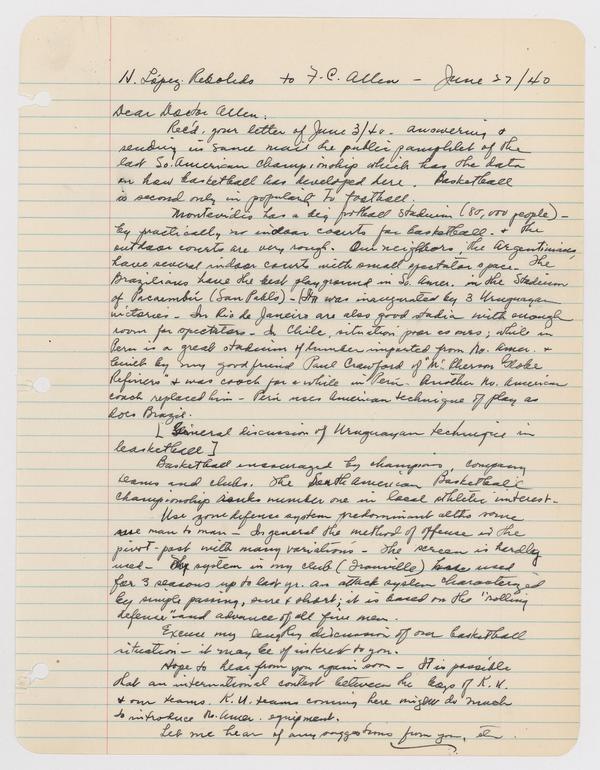 H. López Reboledo to F. C. Allen - June 27/40
Dear Doctor Allen,
Rec'd. your letter of June 3/40. answering &
sending in same mail the public pamphlet of the
last So. American Championship which has the data
on how basketball has developed here. Basketball
is second only in popularity to football.
Montevideo has a big football stadium (80,000 people) -
by practically no indoor courts for basketball. & the
outdoor courts are very rough. Our neighbors, the Argentinians,
have several indoor courts with small spectator space. The
Brazilians have the best playground in So. Amer. in the Stadium
of Pacaembú (San Pablo) - (It was inaugurated by 3 Uruguayan
victories. - In Rio de Janeiro are also good stadia with enough
room for spectators - In Chile, situation poor as ours; while in
Peru is a great stadium of lumber imported from No. Amer. &
built by my good friend Paul Crawford of "Mc Pherson Globe
Refiners" & was coach for a while in Peru. Another No. American
coach replaced him - Peru uses American technique of play as
does Brazil.
[General discussion of Uruguayan technique in
basketball]
Basketball encouraged by champions, company
teams and clubs. The South American Basketball
Championship ranks number one in local athletic interest.
Use zone defense system predominant altho some
use man to man - In general the method of offense is the
pivot-post with many variations - The screen is hardly
used - The system in my club ( ) used
for 3 seasons up to last yr. an attack system characterized
by simple passing, sure & short; it is based on the "rolling
defense" and advance of all five men.
Excuse my lengthy discussion of our basketball
situation - it may be of interest to you.
Hope to hear from you again soon - It is possible
that an international contest between the boys of K.U.
& our teams. K.U. teams coming here might do much
to introduce No. Amer. equipment.
Let me hear of any suggestions from you, etc.